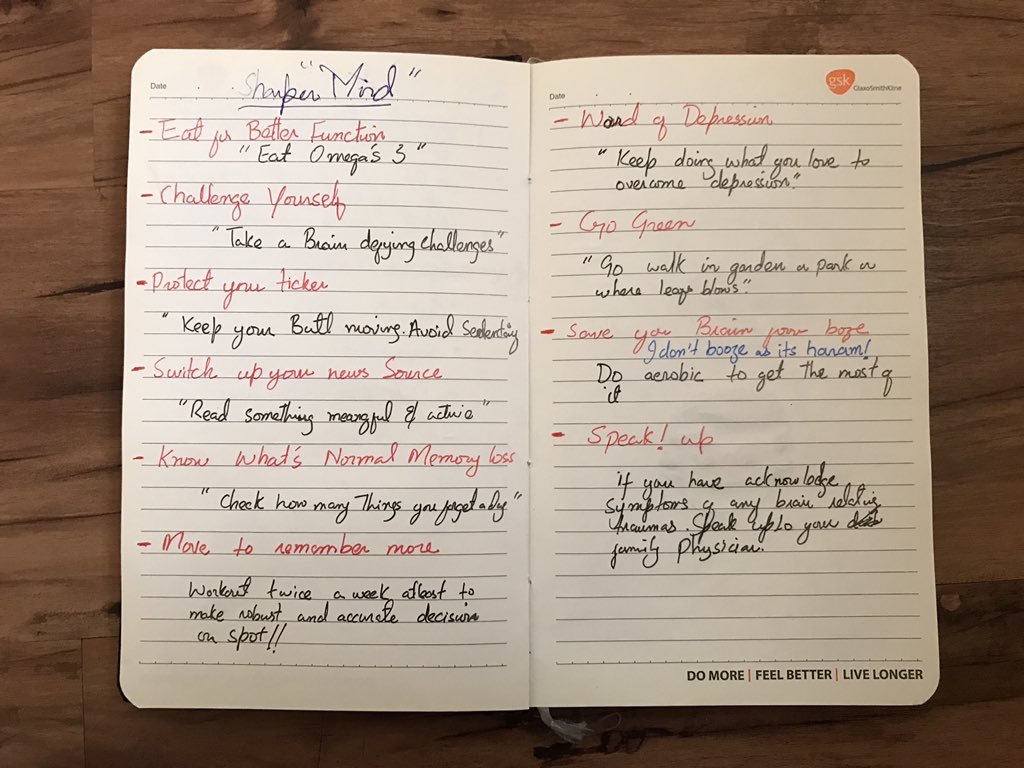 Date
Sharper "Mind"
- Eat for Better Function
"Eat Omega's 3"
- Challenge Yourself
"Take a Brain defying challenges"
- Protect your ticker
"Keep your Butt moving. Avoid Sedentary
- Switch up your news Source
"Read something meangful & active"
- Know What's Normal Memory loss
"Check how many Things you forget a Day"
- Move to remember more
Workout twice a week atleast to
make robust and accurate decision
on spot!!
Date
gsk GlaxoSmithKline
- Ward of Depression
"Keep doing what you love to
overcome depression."
- Go Green
"Go walk in garden or park or
where leafs blows"
- Save your Brain from boze
I don't booze as its haram!
Do aerobic to get the most of
it
- Speak! up
if you have acknowledge
symptoms of any brain relating
traumas. Speak up to your
family Physician.
DO MORE | FEEL BETTER | LIVE LONGER